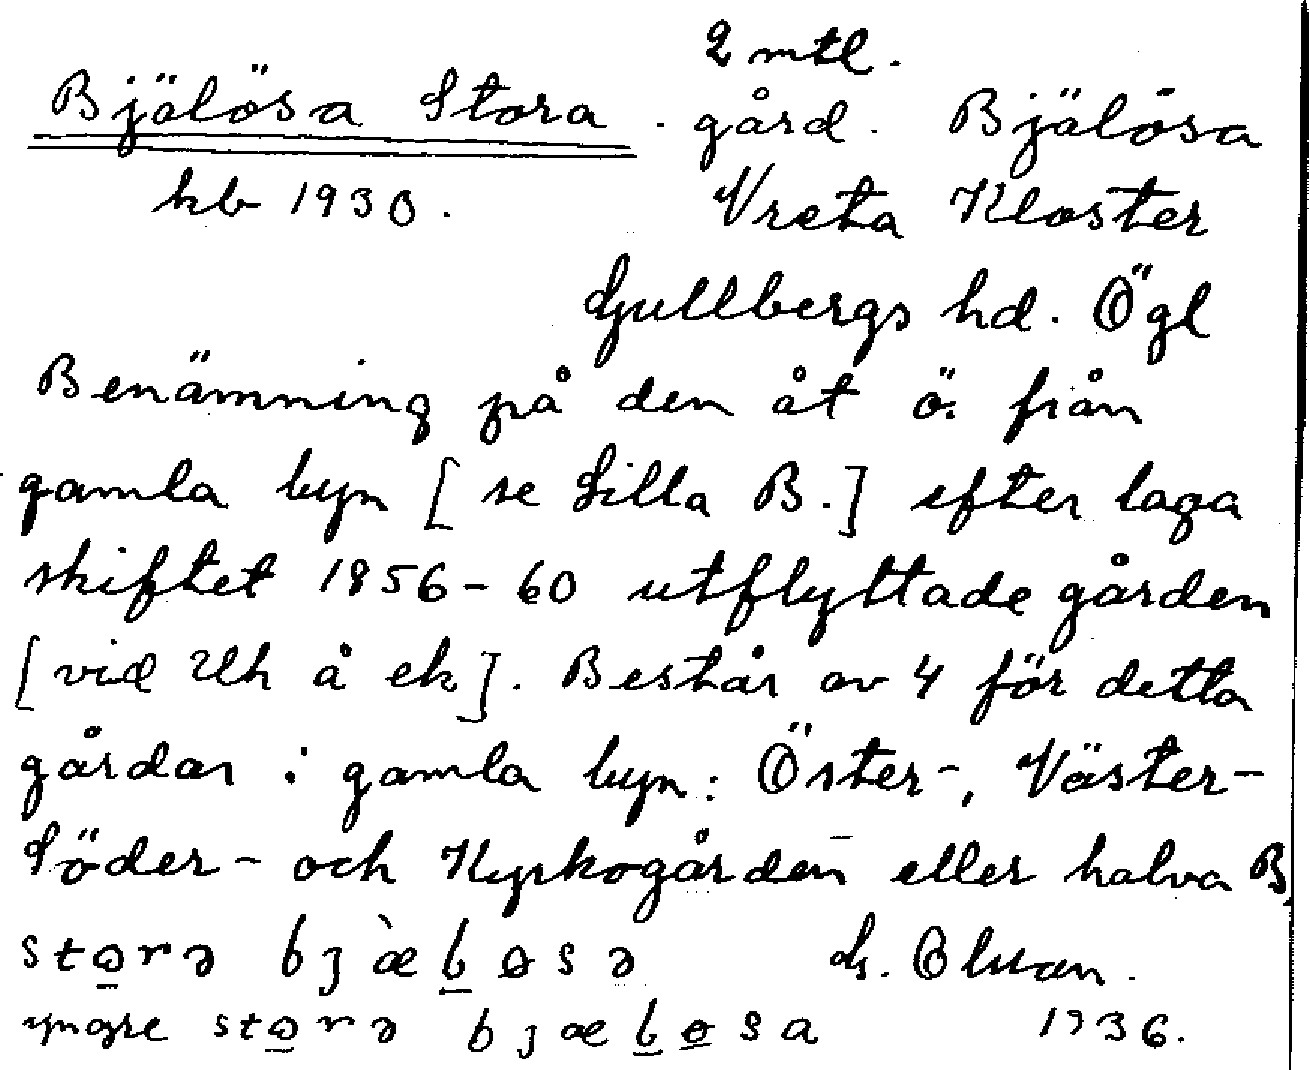 2 mtl.
Bjälösa Stora . gård . Bjälösa
kb 1930. Vreta Kloster
Gullbergs hd. Ögl
Benämning på den åt ö. från
gamla byn [ se Lilla B.] efter laga
skiftet 1856-60 utflyttade gården
[ vid Uh å ek]. Består av 4 för detta
gårdar i gamla byn: Öster-, Väster-
Söder- och Kyrkogården eller halva B.
sto̲rə bjæ̀ɫ̲ɵsə
yngre sto̲rə bjæɫ̲ɵ̲sa 1936.